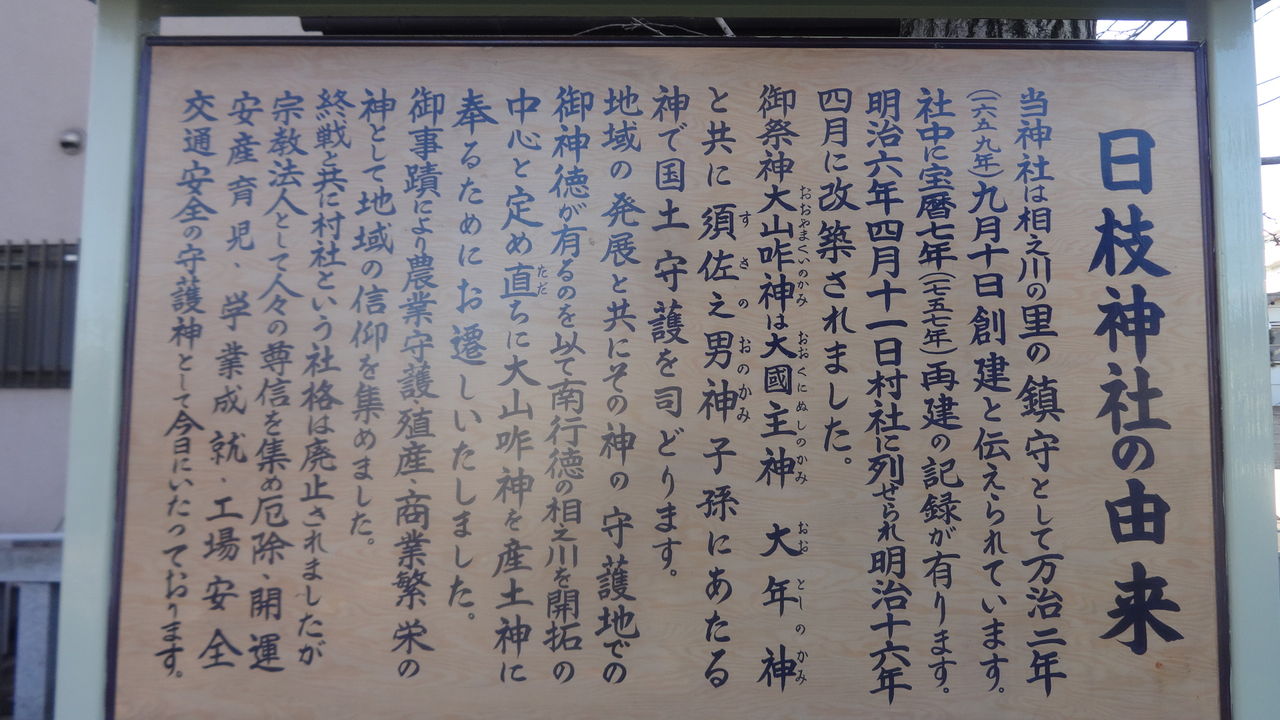 日枝神社の由来
当神社は相之川の里の鎮守として万治二年
(一六五九年)九月十日創建と伝えられています。
社中に宝暦七年(七五七年)再建の記録が有ります。
明治六年四月十一日村社に列せられ明治十六年
四月に改築されました。
御祭神大山咋神は大國主神 大年神
おおやまくいのかみ おおくにぬしのかみ おおとしのかみ
と共に須佐之男神子孫にあたる
すさのおのかみ
神で国土守護を司どります。
地域の発展と共にその神の守護地での
御神徳が有るのを以て南行徳の相之川を開拓の
中心と定め直ちに大山咋神を産土神に
ただ
奉るためにお遷しいたしました。
御事蹟により農業守護殖産、商業繁栄の
神として地域の信仰を集めました。
終戦と共に村社という社格は廃止されましたが
宗教法人として人々の尊信を集め厄除、開運
安産育児、学業成就、工場安全
交通安全の守護神として今日にいたっております。